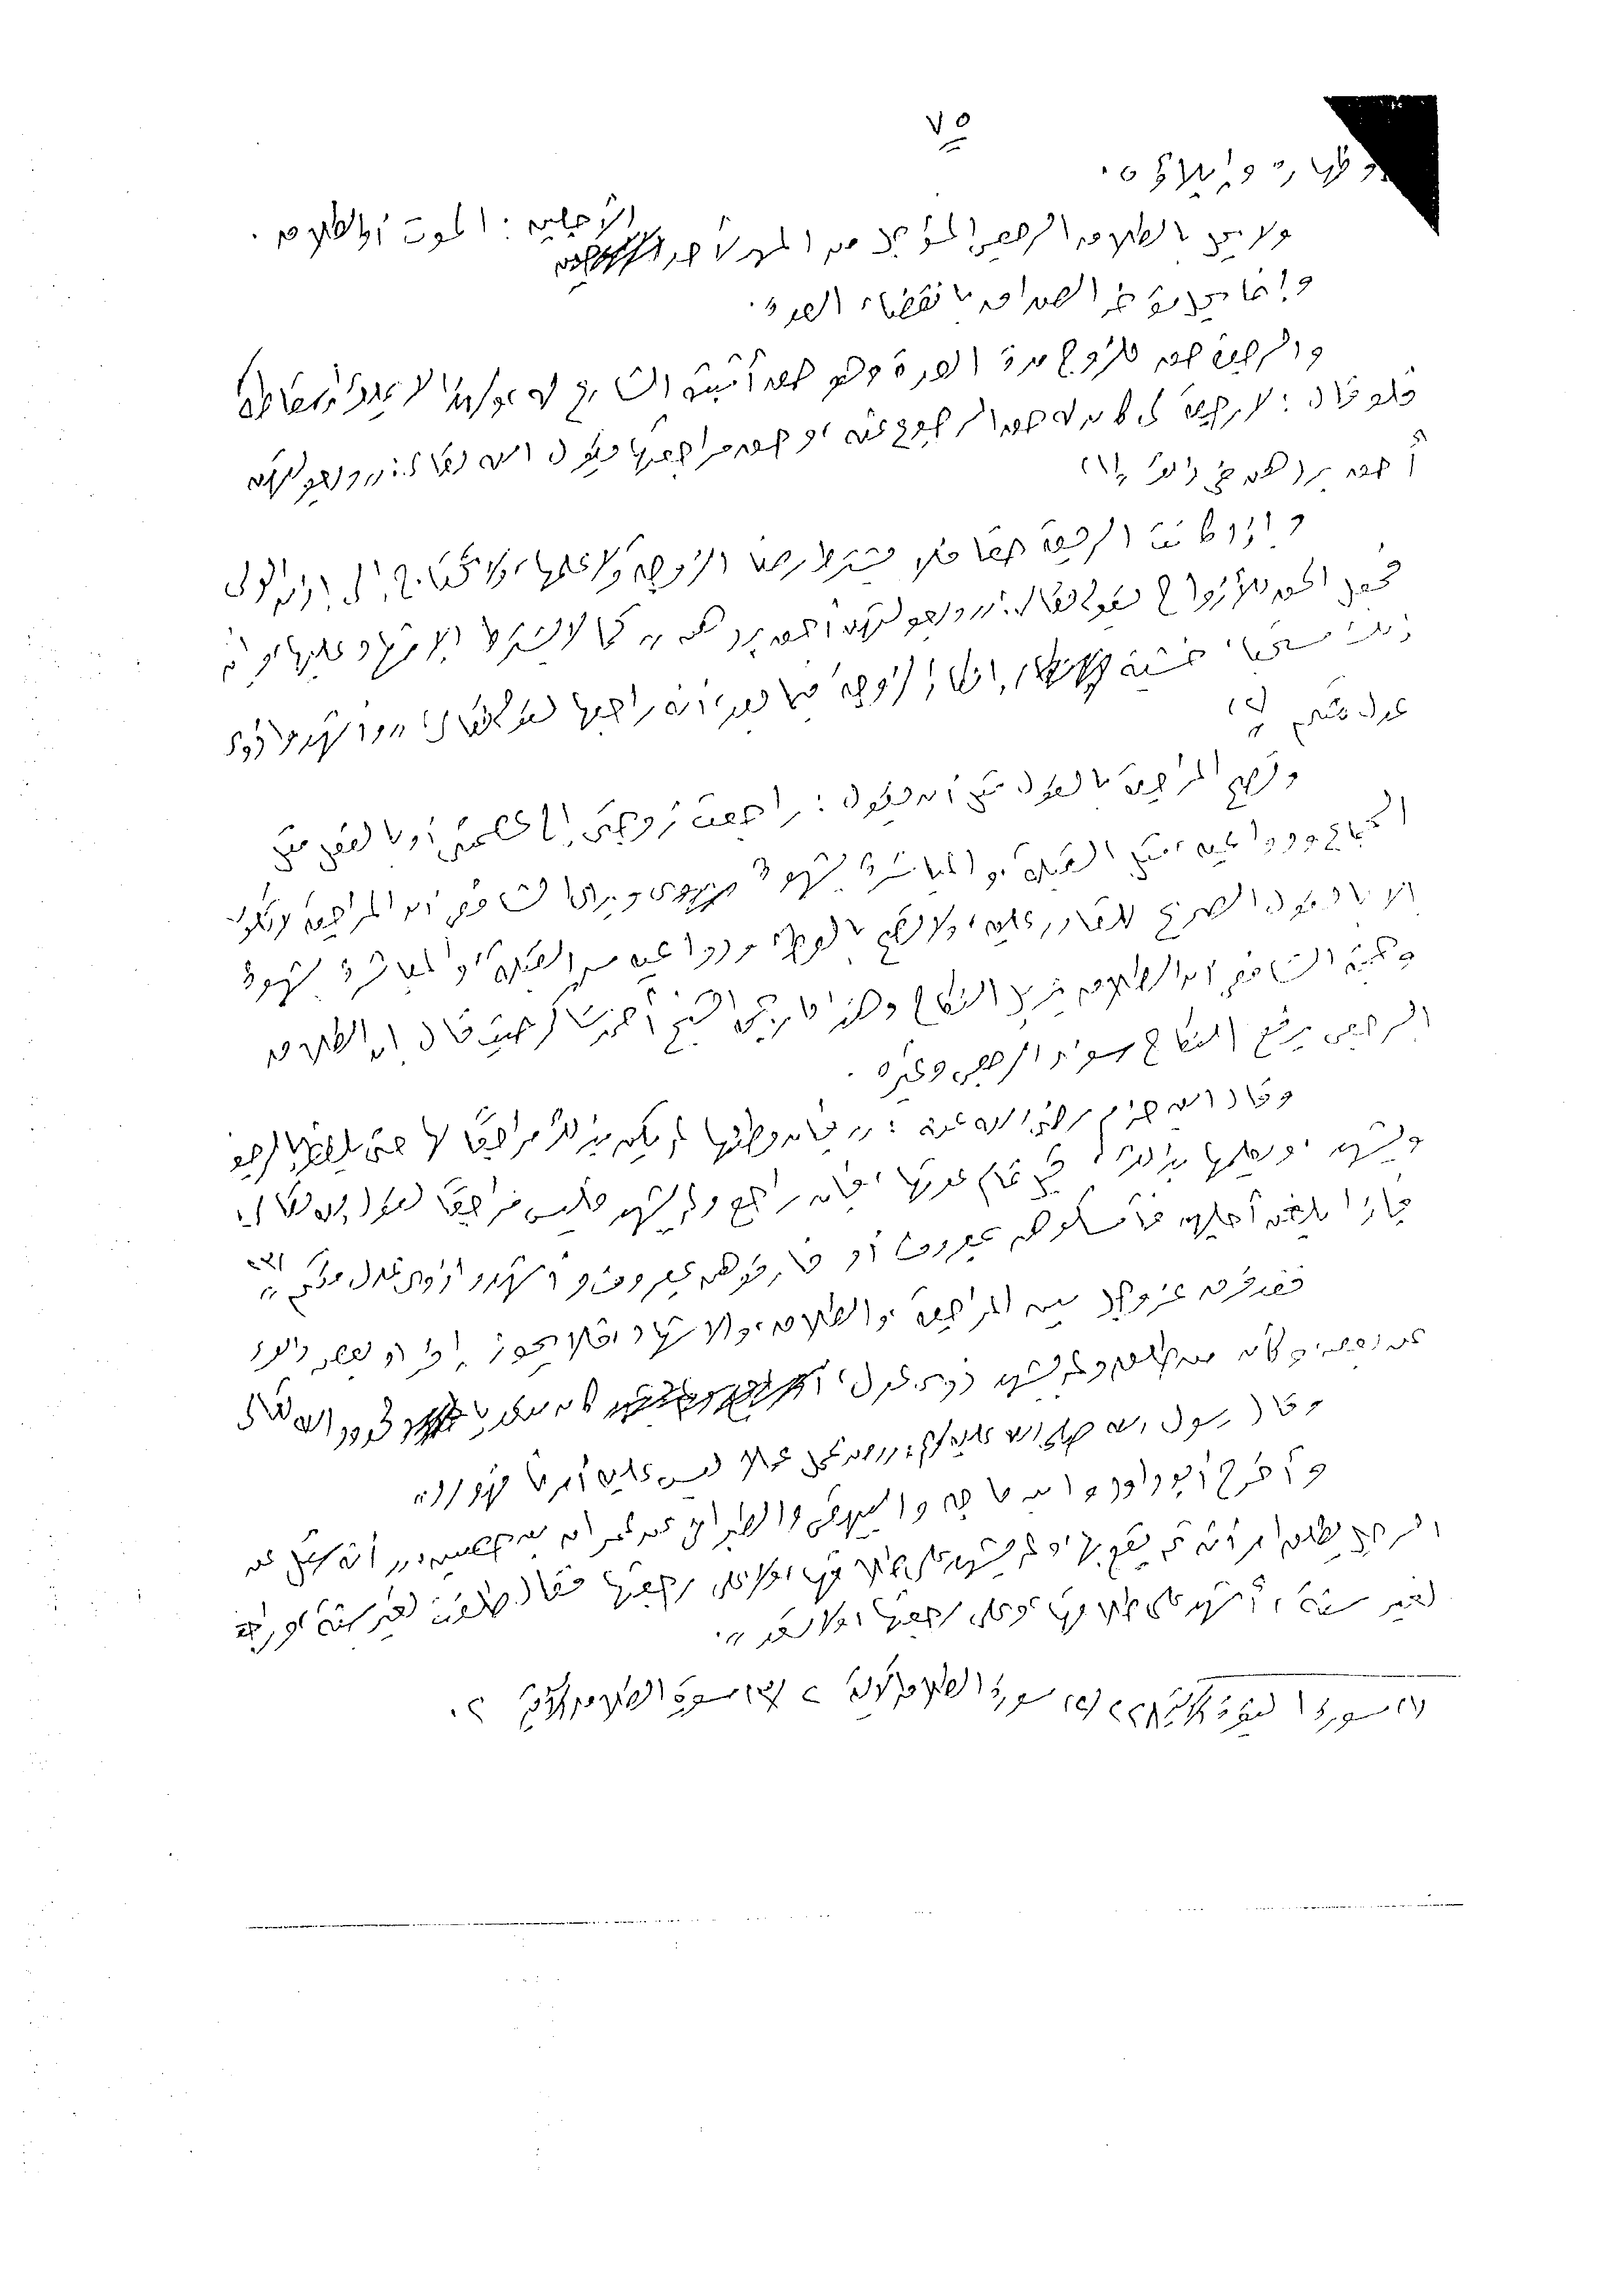 ٧٥
وظهاره وإيلاؤه.
ولا يحل بالطلاق الرجعى المؤجل من المهر لأحد الأجلين : الموت أو الطلاق .
وإنما يحل مؤخر الصداق بانقضاء العدة .
والرجعة حق للزوج مدة العدة وهو حق أثبته الشارع له ولهذا لا يملك إسقاطه
فلو قال : لا رجعة لى كان له حق الرجوع عنه ، وحق مراجعتها يقول الله تعالى: " وبعولتهن
أحق بردهن فى ذلك " (١)
وإذا كانت الرجعة حقا فلا يشترط رضا الزوجة ولا علمها ، ولا تحتاج إلى إذن الولى
فجعل الحق للأزواج لقوله تعالى: " وبعولتهن أحق بردهن " كما لا يشترط الإشهاد عليها وإن
ذلك مستحبا خشية إنكار الزوجة فيما بعد، أنه راجعها لقوله تعالى: " وأشهدوا ذوى
عدل منكم " (٢)
وتصح المراجعة بالقول مثل أن يقول : راجعت زوجتى إلى عصمتى أو بالفعل مثل
الجماع ودواعيه ، مثل القبلة ، والمباشرة بشهوة ويرى الشافعى أن المراجعة لا تكون
إلا بالقول الصريح للقادر عليه ، ولا تصح بالوطء ودواعيه من القبلة ، والمباشرة بشهوة
وحجة الشافعى أن الطلاق يزيل النكاح وهذا ما رجحه الشيخ أحمد شاكر حيث قال إن الطلاق
الرجعى يرفع النكاح سواء الرجعى وغيره .
وقال ابن حزم رضى الله عنه : " فإن وطئها لم يكن بذلك مراجعًا لها حتى يلفظ بالرجعة
ويشهد ، ويعلمها بذلك ، قبل تمام عدتها ، فإن راجع ولم يشهد فليس مراجعًا لقول الله تعالى:
فإذا بلغن أجلهن فأمسكوهن بمعروف أو فارقوهن بمعروف وأشهدوا ذوى عدل منكم " (٣)
فقد قرن عز وجل بين المراجعة ، والطلاق ، والإشهاد ، فلا يجوز إفراد بعض ذلك
عن بعض ، وكان من طلق ولم يشهد ذوى عدل، كان متعديا لحدود الله تعالى
وقال رسول الله صلى الله عليه وسلم: " من عمل عملا ليس عليه أمرنا فهو رد "
وأخرج أبو داود وابن ماجه والبيهقى والطبرانى عن عمران بن حصين: " أنه سئل عن
الرجل يطلق امرأته ثم يقع بها ولم يشهد على طلاقها ولا على رجعتها فقال طلقت لغير سنة ، وراجعت
لغير سنة ، أشهد على طلاقها ، وعلى رجعتها ، ولا تعد " .
(١) سورة البقرة الآية ٢٢٨ (٢) سورة الطلاق الآية ٢ (٣) سورة الطلاق الآية ٢ .